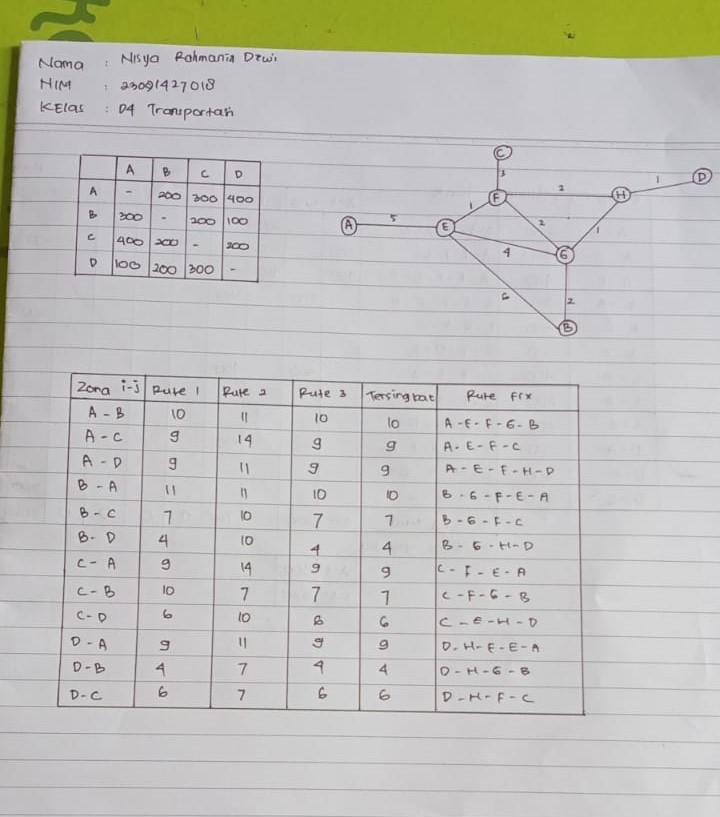 Nama : Nisya Rahmania Dewi
NIM : 23091427018
KElas : D4 Transportasi
A B C D
A - 200 300 400
B 300 - 200 100
C 400 200 - 200
D 100 200 300 -
C
3
D
1
F 2 H
1
A 5 E 2 1
4 G
6 2
B
Zona i-j Rute 1 Rute 2 Rute 3 Tersingkat Rute Fix
A - B 10 11 10 10 A - E - F - G - B
A - C 9 14 9 9 A - E - F - C
A - D 9 11 9 9 A - E - F - H - D
B - A 11 11 10 10 B - G - F - E - A
B - C 7 10 7 7 B - G - F - C
B - D 4 10 4 4 B - G - H - D
C - A 9 14 9 9 C - F - E - A
C - B 10 7 7 7 C - F - G - B
C - D 6 10 8 6 C - E - H - D
D - A 9 11 9 9 D - H - E - E - A
D - B 4 7 4 4 D - H - G - B
D - C 6 7 6 6 D - H - F - C